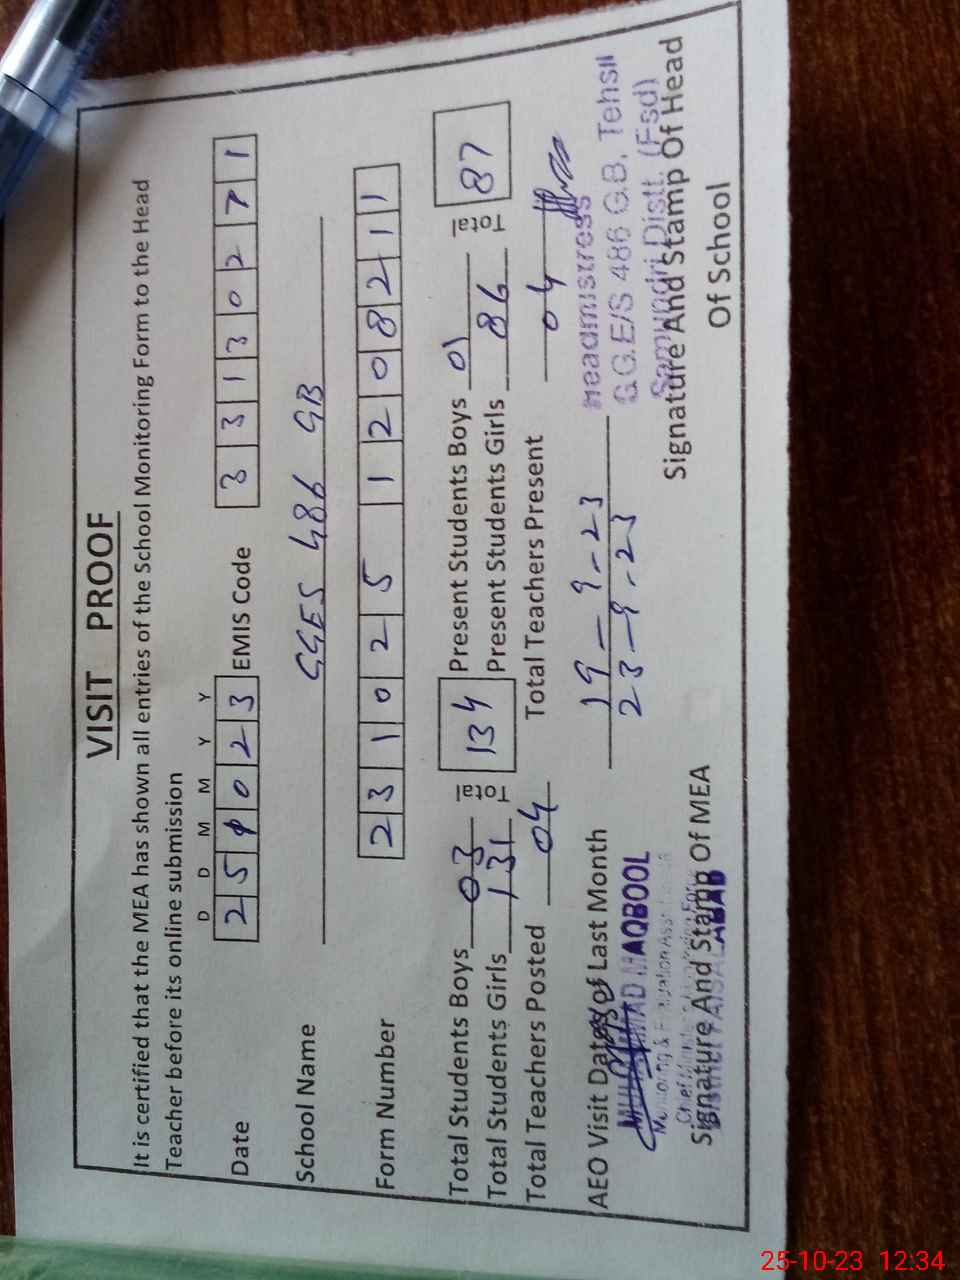 VISIT PROOF
It is certified that the MEA has shown all entries of the School Monitoring Form to the Head
Teacher before its online submission
D D M M Y Y
Date 25 10 23 EMIS Code 33130271
School Name GGES 486 GB
Form Number 231025 1208211
Total Students Boys 03 Total 134 Present Students Boys 01 Total 87
Total Students Girls 131 Present Students Girls 86
Total Teachers Posted 04 Total Teachers Present 04
AEO Visit Dates of Last Month 19-9-23
23-9-23
MUHAMMAD MAQBOOL
Monitoring & Evaluation Assistant
Chief Minister's Monitoring Force
District FAISALABAD
Signature And Stamp Of MEA
Headmistress
G.G.E/S 486 G.B, Tehsil
Samundri Distt. (Fsd)
Signature And Stamp Of Head
Of School
25-10-23 12:34